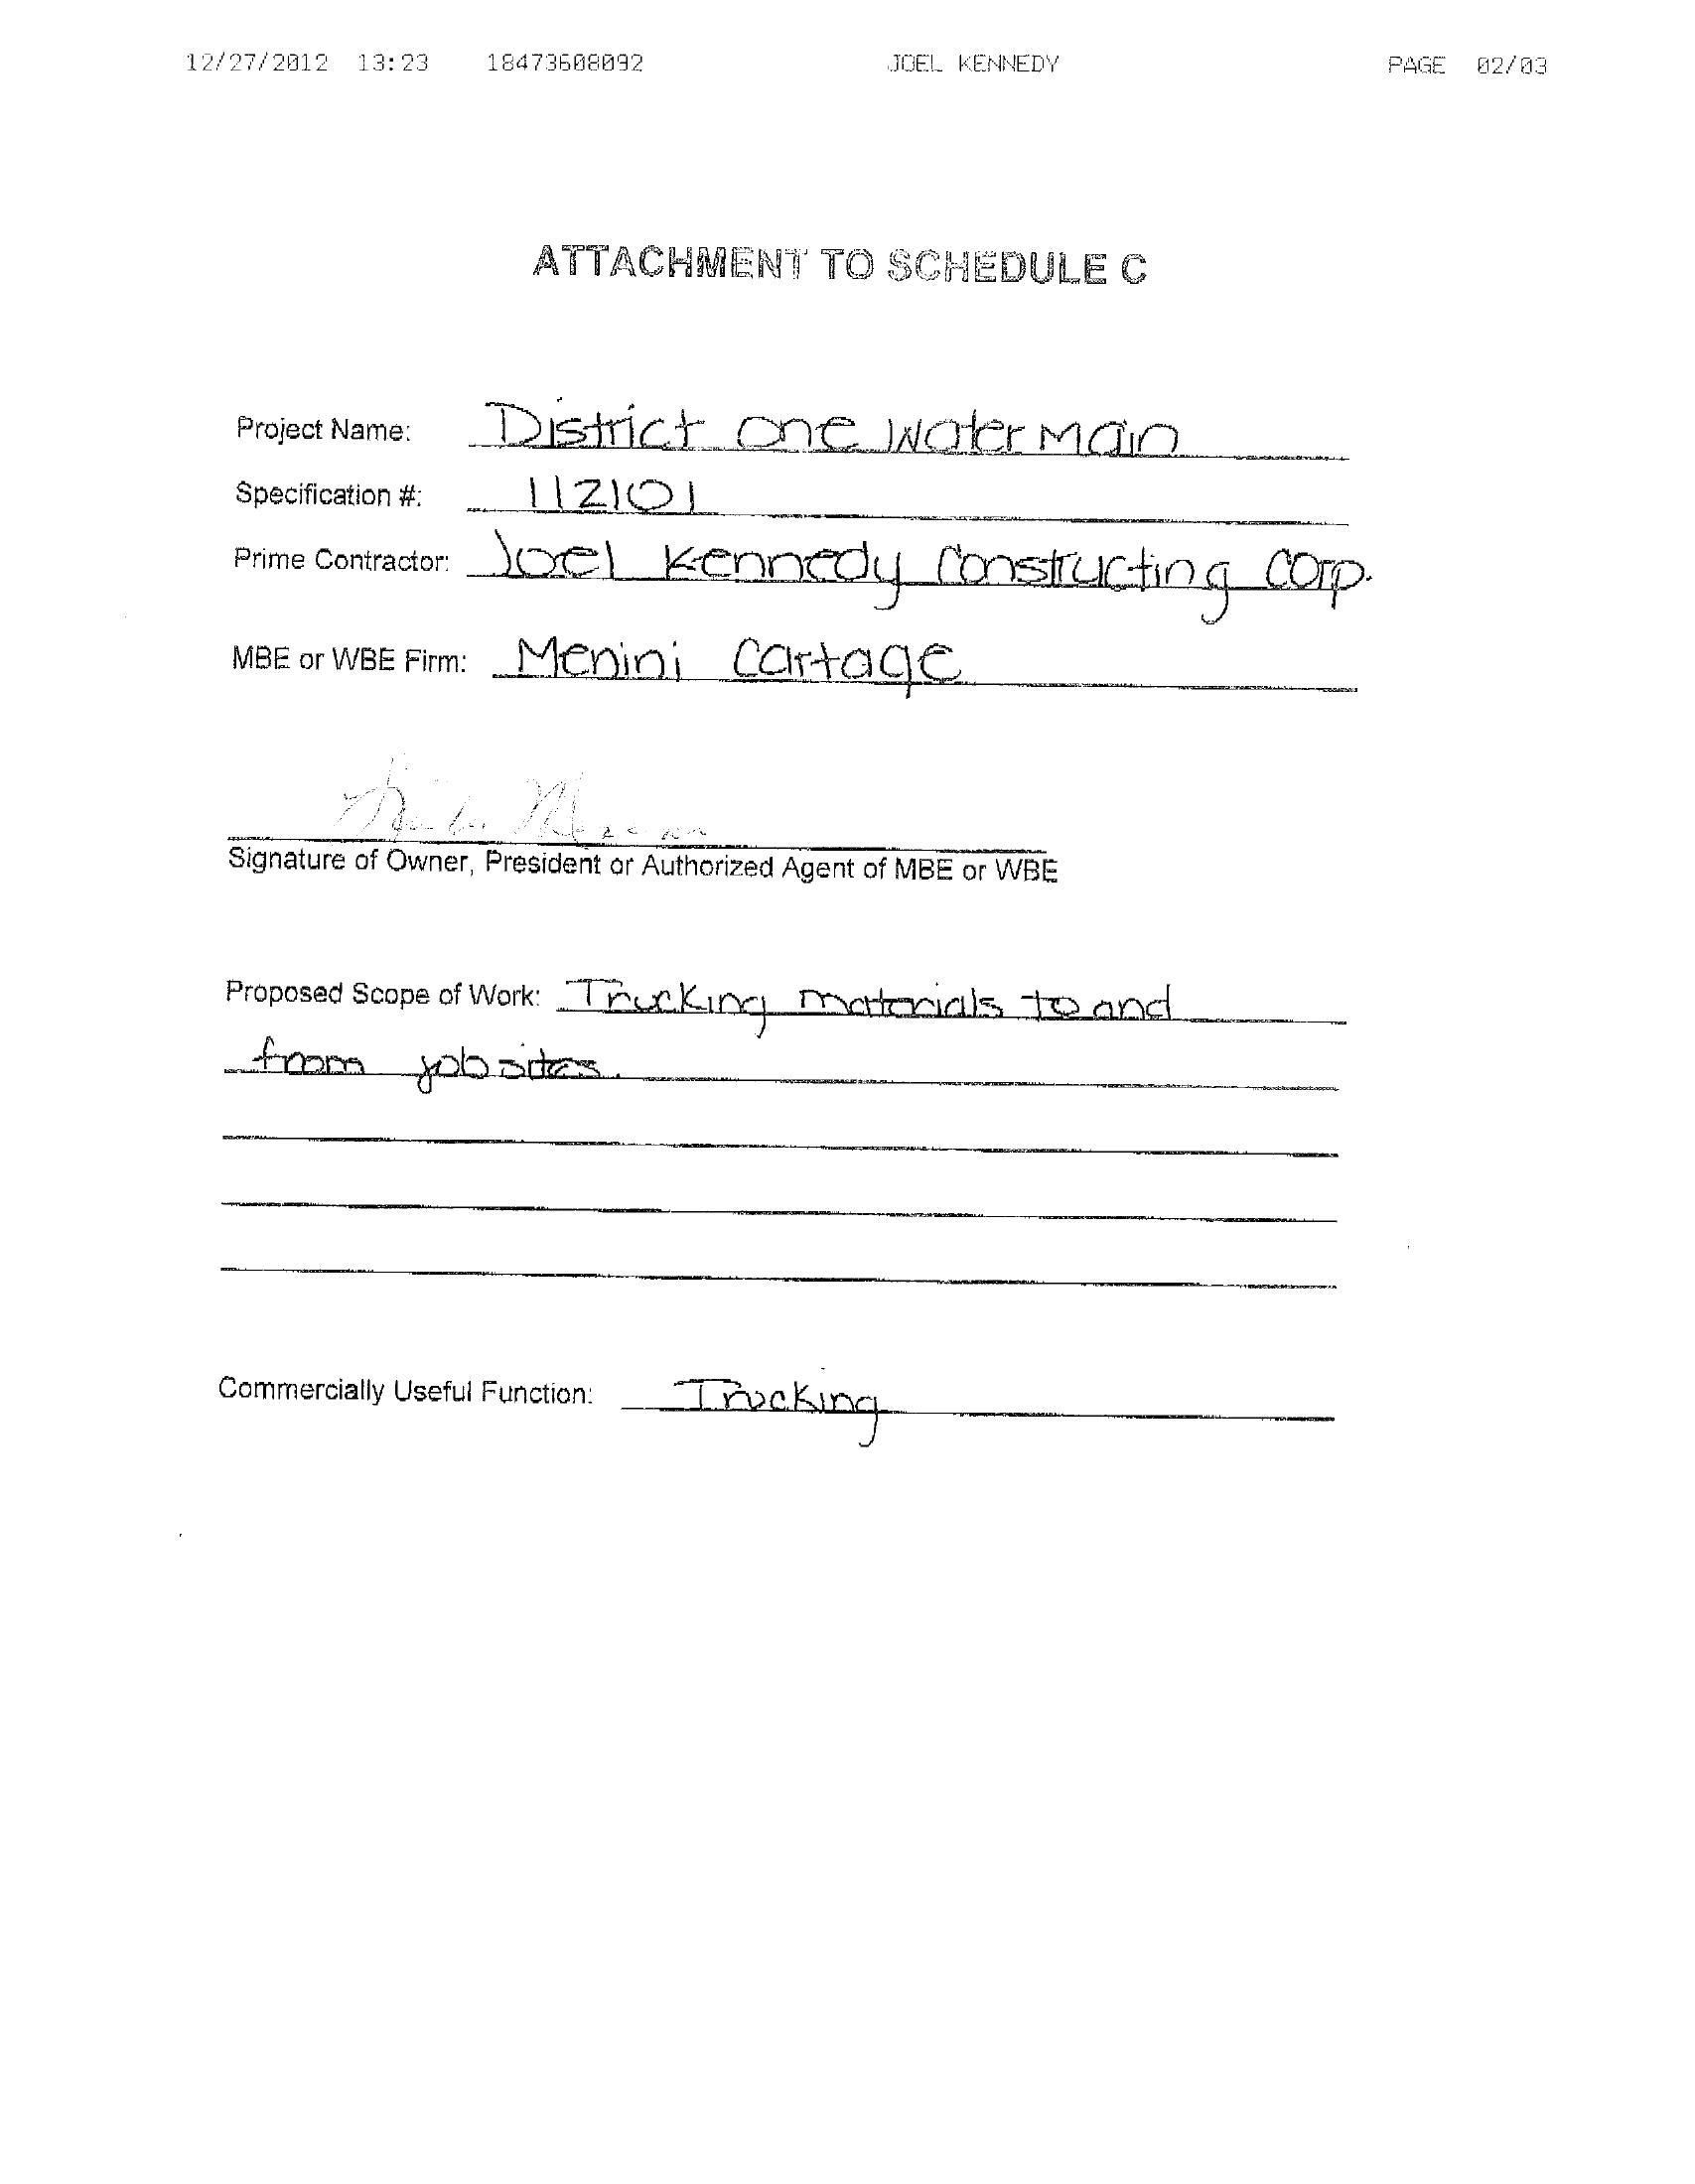 12/27/2012 13:23 18473608092 JOEL KENNEDY PAGE 02/03
ATTACHMENT TO SCHEDULE C
Project Name: District One Water Main
Specification #: 112101
Prime Contractor: Joel Kennedy Constructing Corp.
MBE or WBE Firm: Menini Cartage
Signature of Owner, President or Authorized Agent of MBE or WBE
Proposed Scope of Work: Trucking materials to and
from job sites.
Commercially Useful Function: Trucking